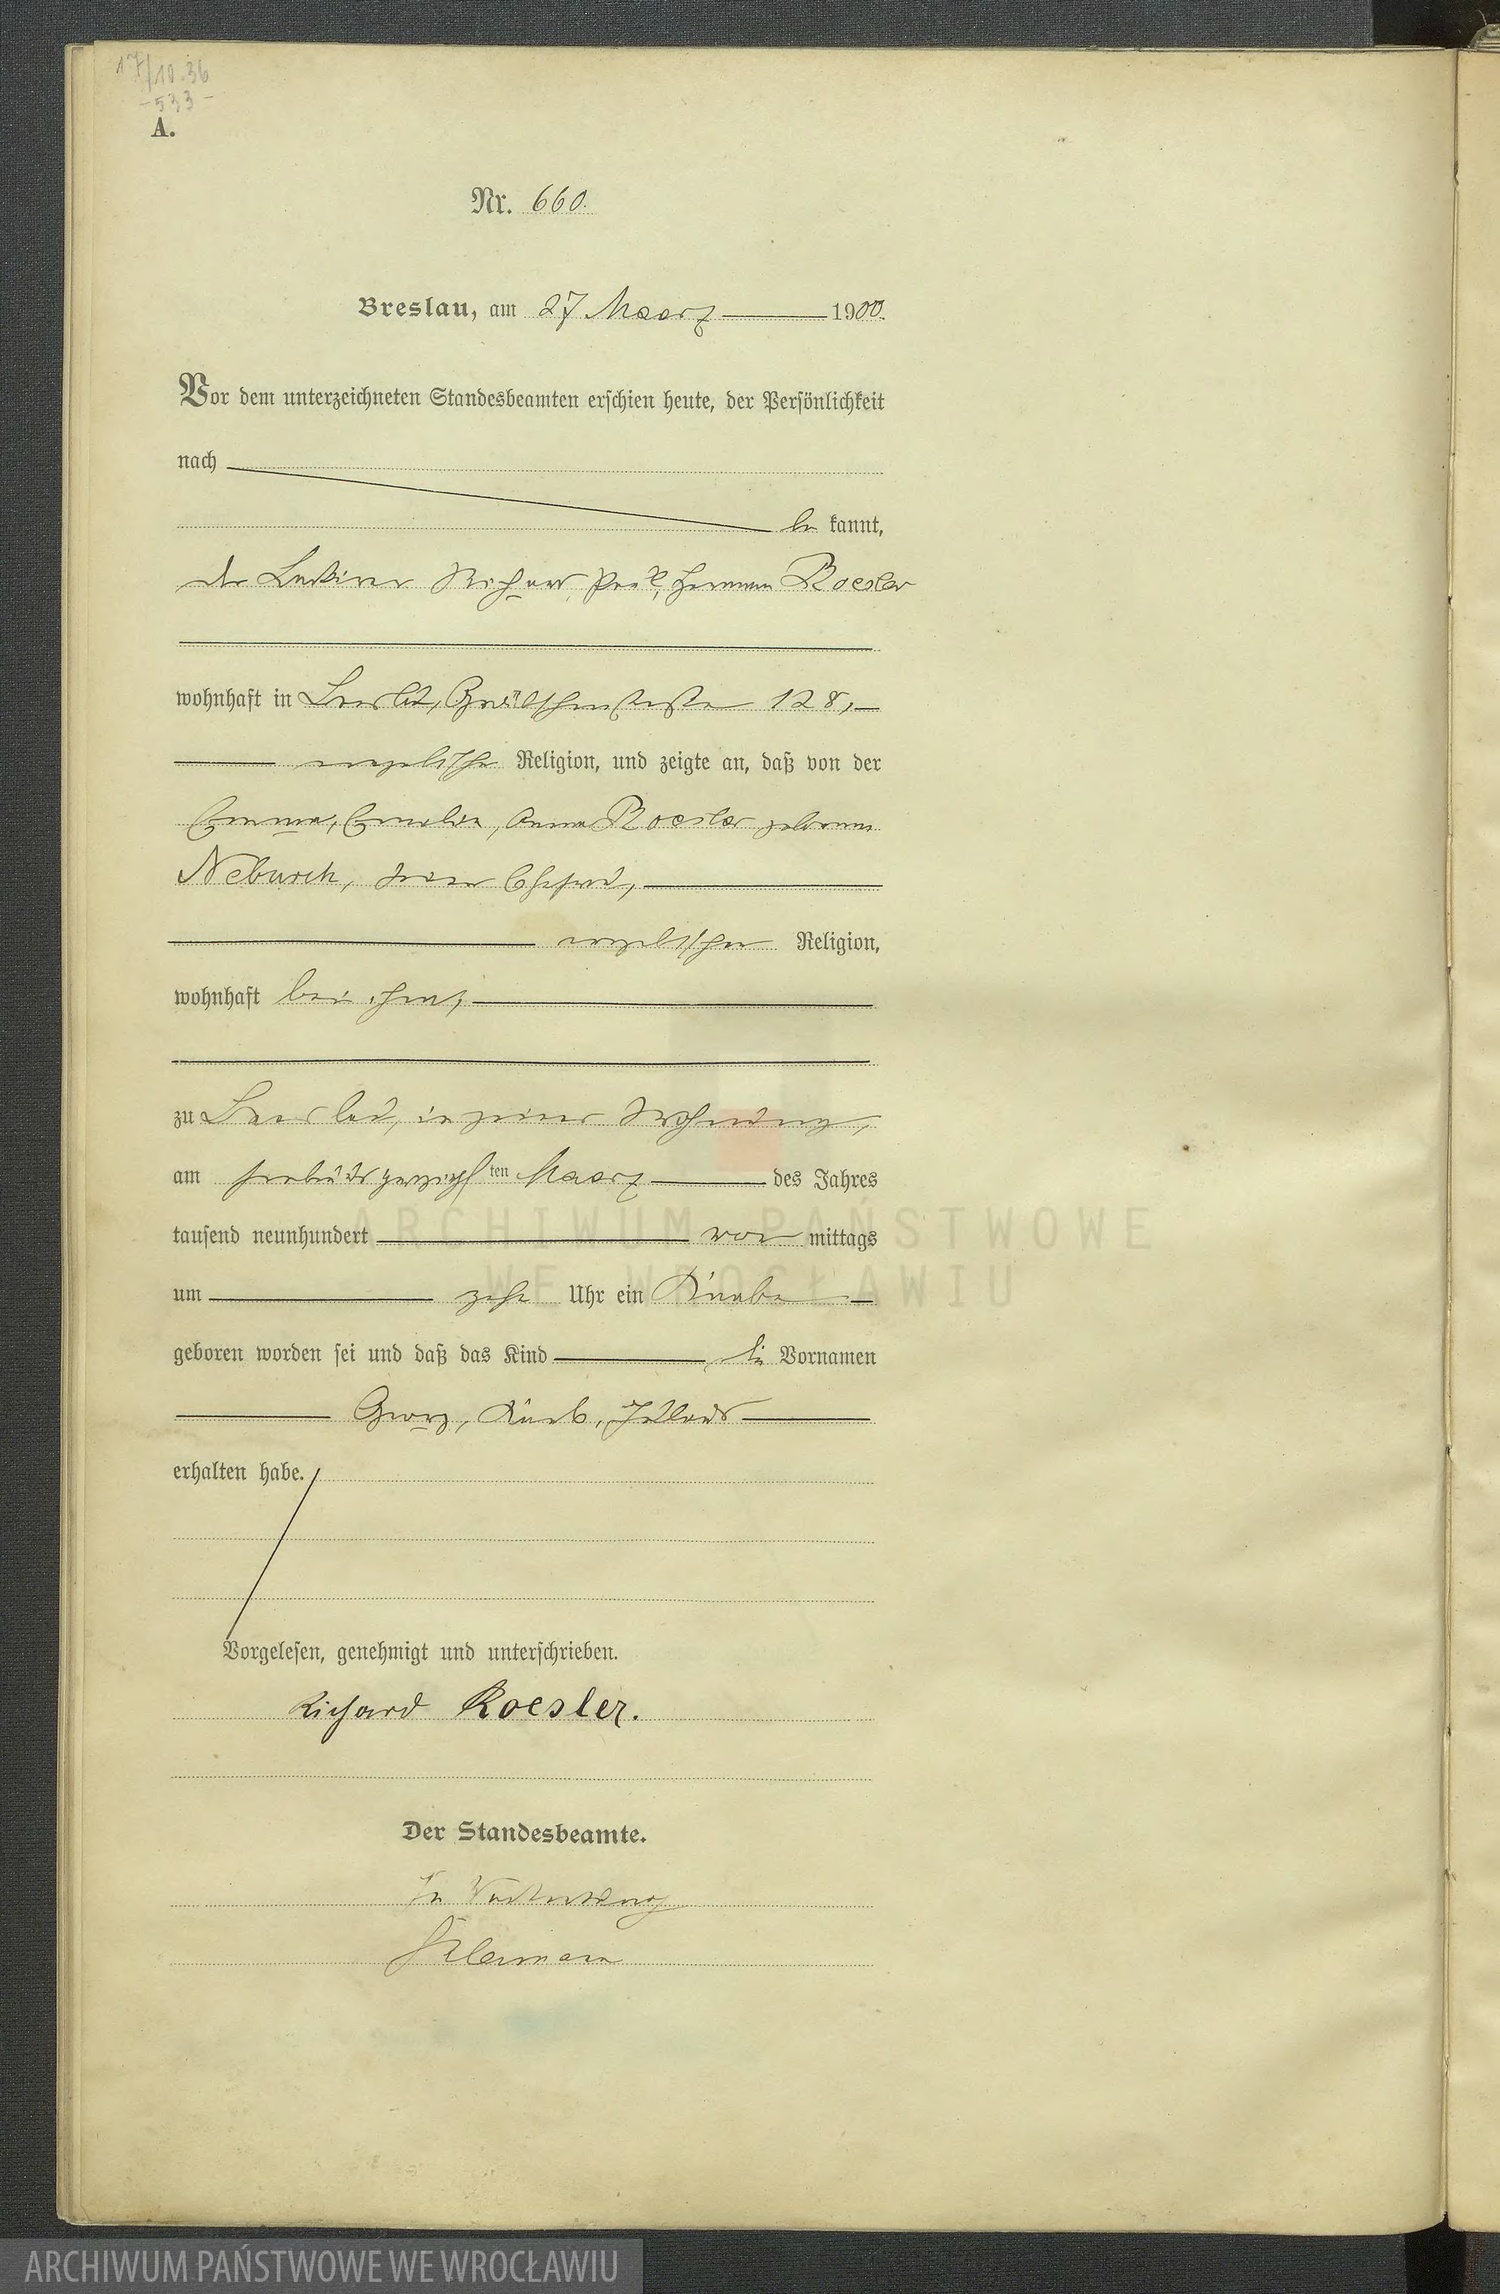 17/10.36
-533-
A.
Nr. 660.
Breslau, am 27 Maerz 1900.
Vor dem unterzeichneten Standesbeamten erschien heute, der Persönlichkeit
nach
be kannt,
der Lackirer Richard, Paul, Hermann Roesler
wohnhaft in Breslau, Gräbschenerstraße 128,
evangelischer Religion, und zeigte an, daß von der
Emma, Emilie, Anna Roesler geborenen
Neburch, seiner Ehefrau,
evangelischer Religion,
wohnhaft bei ihm,
zu Breslau, in seiner Wohnung,
am ten Maerz des Jahres
tausend neunhundert vor mittags
um zehn Uhr ein Knabe
geboren worden sei und daß das Kind die Vornamen
Georg, Kurt,
erhalten habe.
Vorgelesen, genehmigt und unterschrieben.
Richard Roesler.
Der Standesbeamte.
In Vertretung
ARCHIWUM PAŃSTWOWE
WE WROCŁAWIU
ARCHIWUM PAŃSTWOWE WE WROCŁAWIU